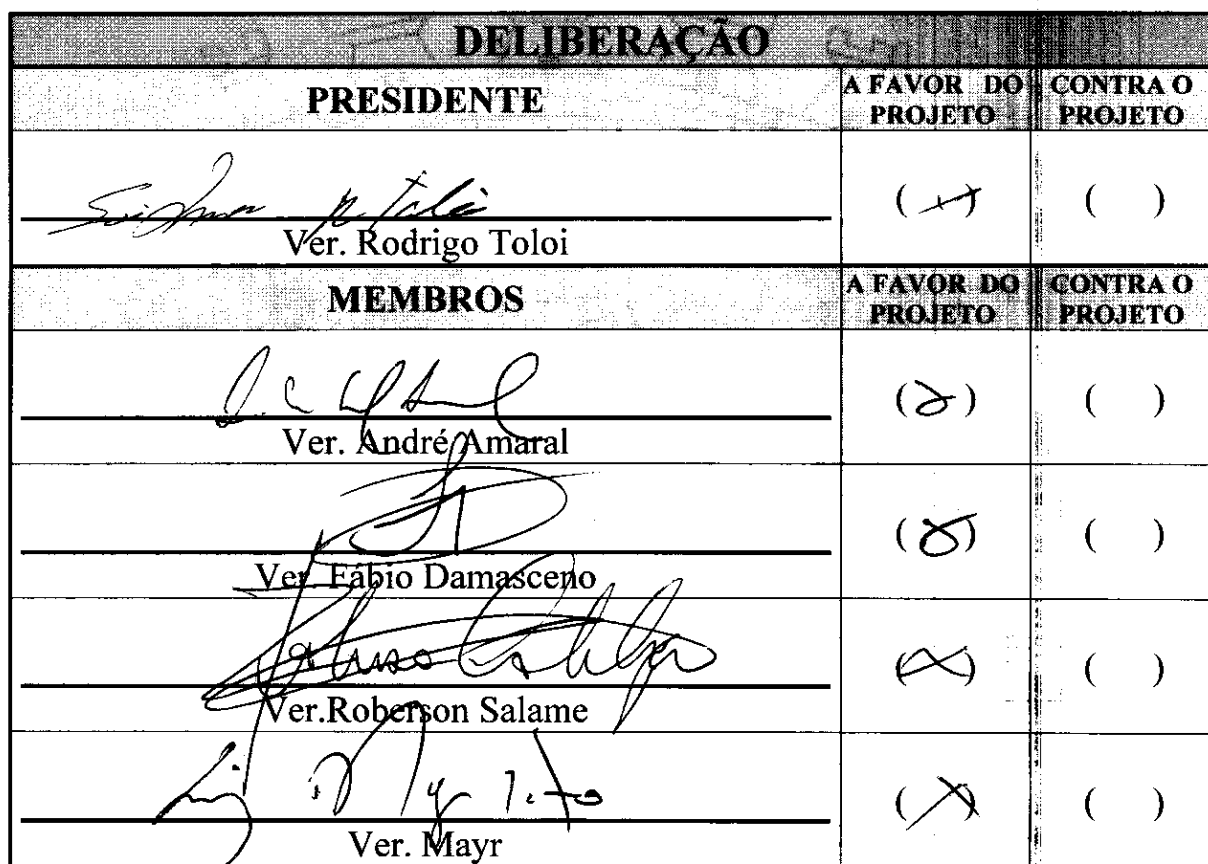 DELIBERAÇÃO
PRESIDENTE
A FAVOR DO PROJETO
CONTRA O PROJETO
Ver. Rodrigo Toloi
( X )
( )
MEMBROS
A FAVOR DO PROJETO
CONTRA O PROJETO
Ver. André Amaral
( X )
( )
Ver. Fábio Damasceno
( X )
( )
Ver.Roberson Salame
( X )
( )
Ver. Mayr
( X )
( )